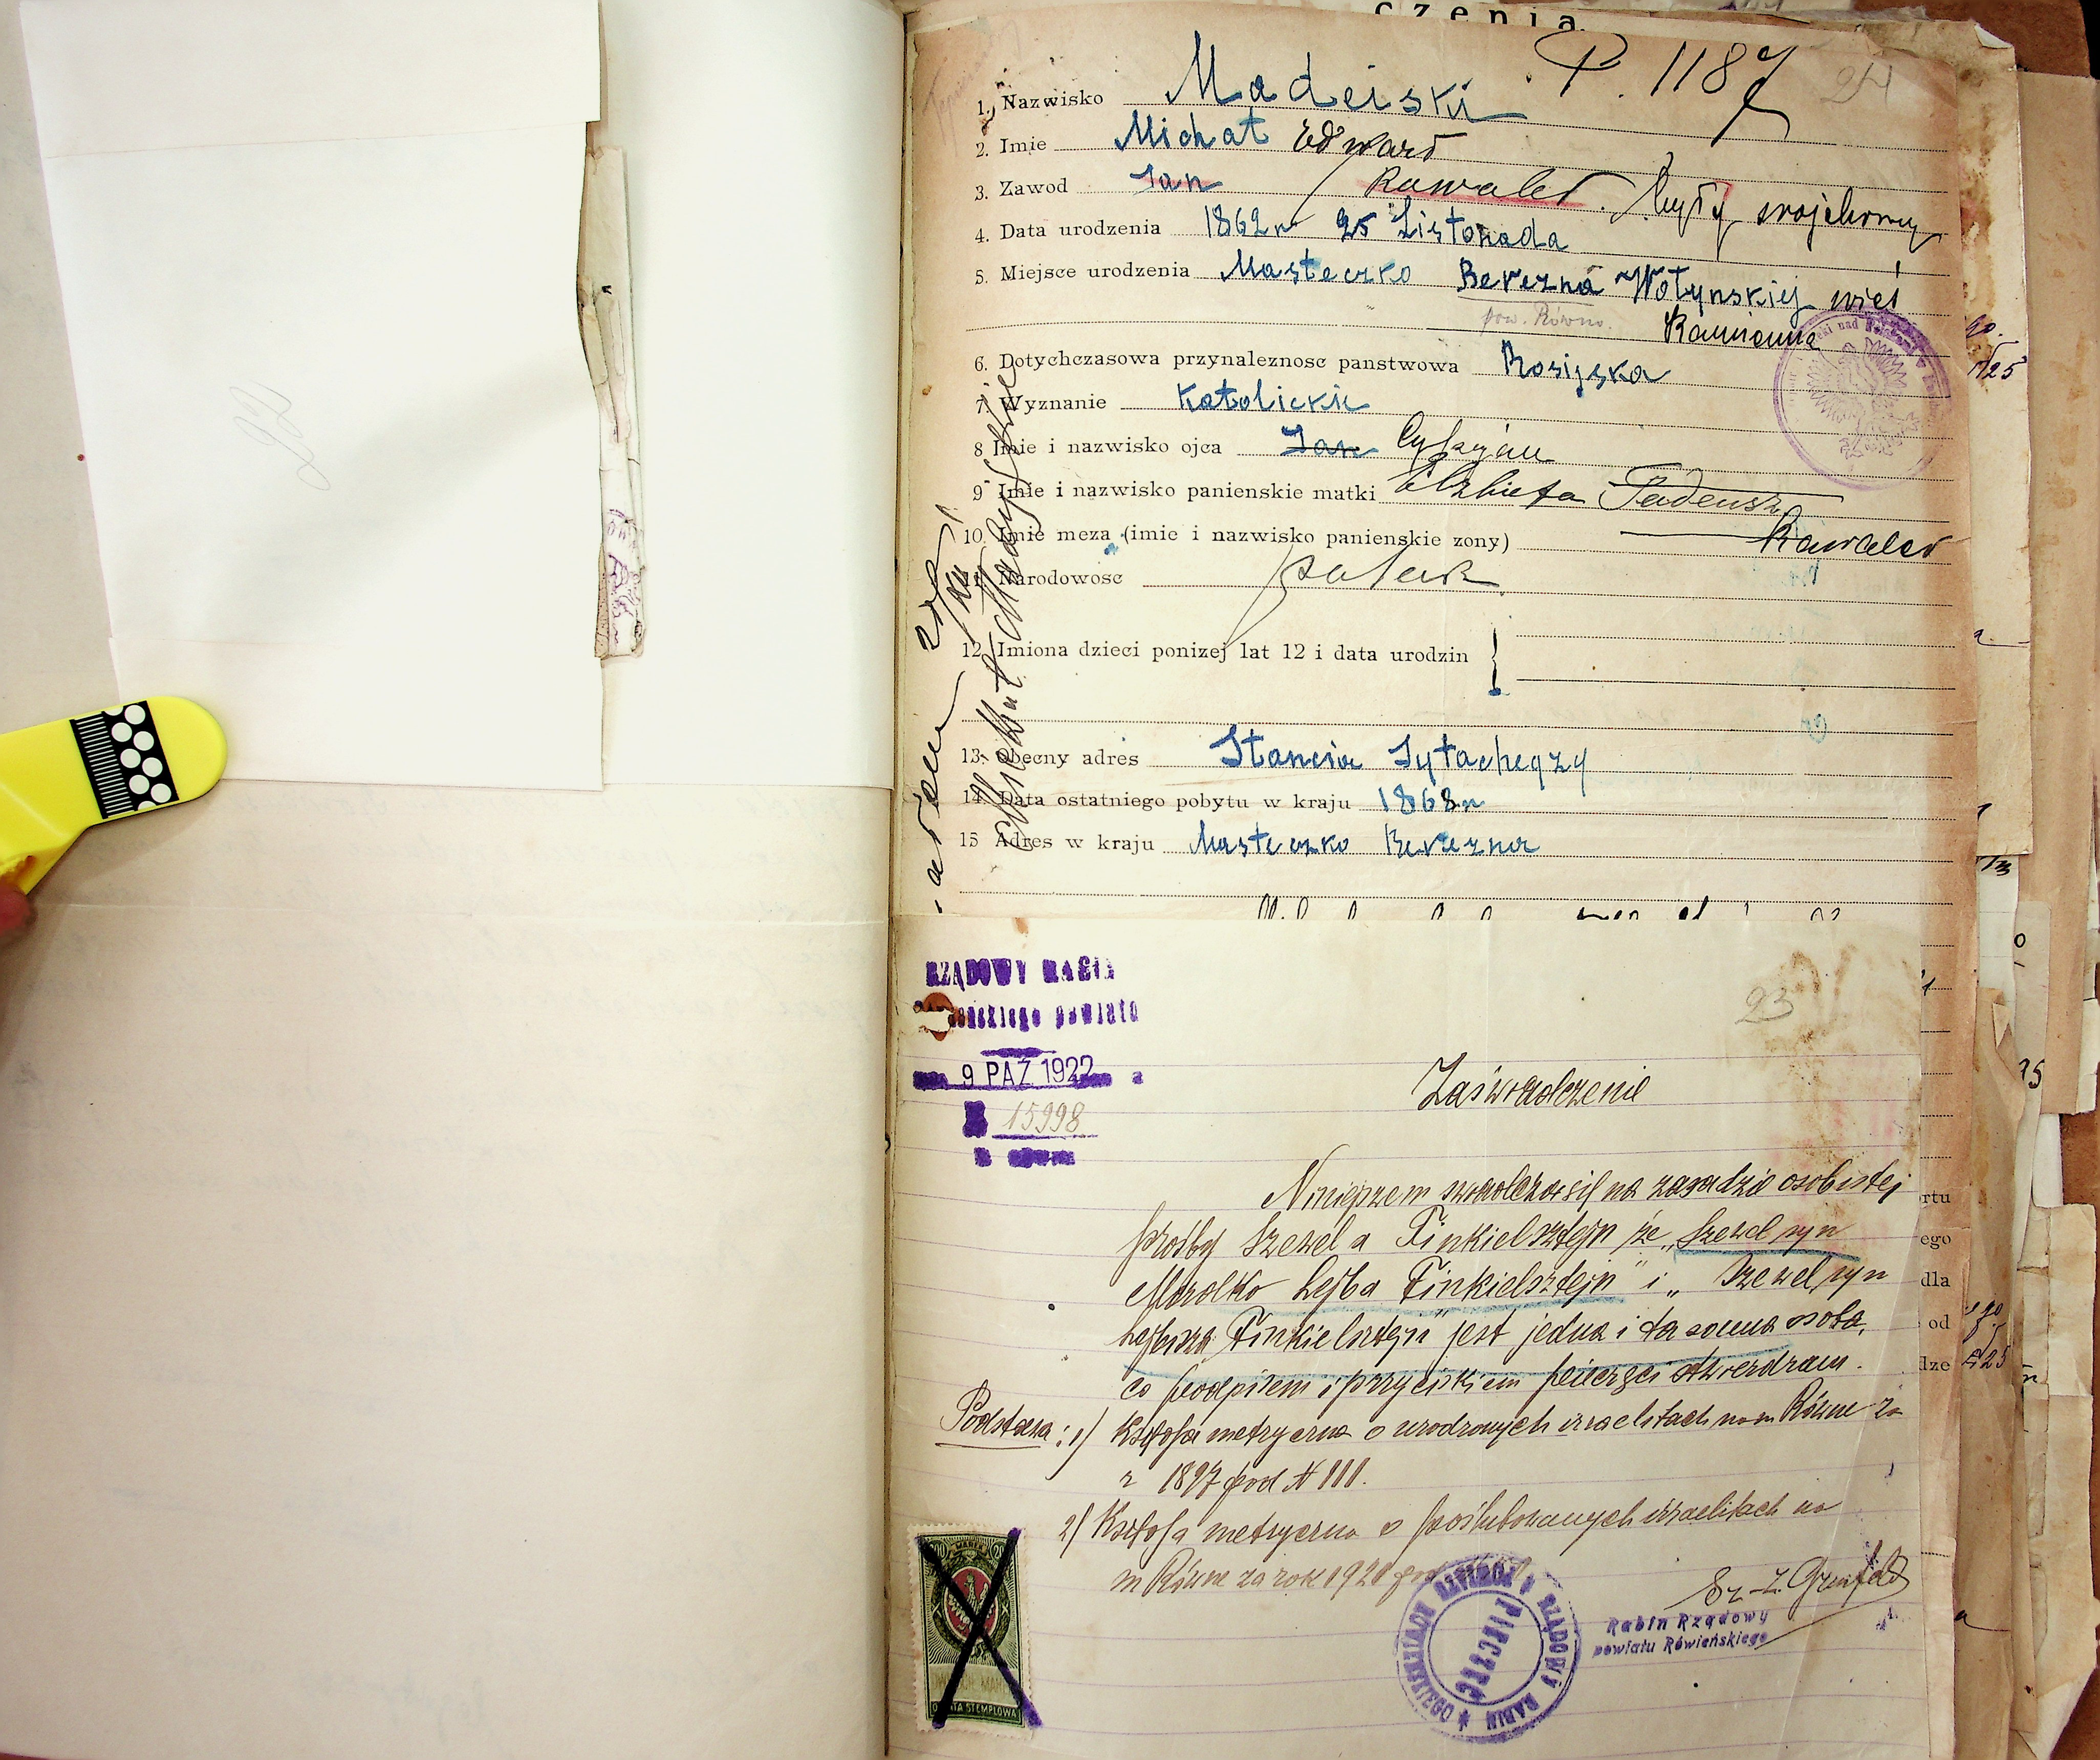 czenia
P. 1187
24
1. Nazwisko Madeiski
2. Imie Michał Edward
3. Zawod Jan Kawaler. były wojskowy
4. Data urodzenia 1862 r 25 Listopada
5. Miejsce urodzenia Masteczko Berezna Wołynskiej wieś
pow. Równo. Kamionna
6. Dotychczasowa przynaleznosc panstwowa Rosijska
7. Wyznanie Katolickie
8 Imie i nazwisko ojca Jan Cypryan
9 Imie i nazwisko panienskie matki Elzbieta Tadeusz
10. Imie meza (imie i nazwisko panienskie zony) Kawaler
11. Narodowosc polak
12. Imiona dzieci ponizej lat 12 i data urodzin
13. obecny adres Stancia Sytachęzy
14. Data ostatniego pobytu w kraju 1868 r
15 Adres w kraju Masteczko Berezna
RZĄDOWY RABIN
powiatu
9 PAŹ 1922
15998
23
Zaświadczenie
Niniejszem swiadcza się na zasadzie osobistej
prośby Szewela Finkielsztejn że „Szewel syn
Mordko Lejba Finkielsztejn" i „Szewel syn
Lejbisza Finkielsztejn" jest jedna i ta sama osoba,
co podpisem i przyciskiem pieczęci stwierdzam.
Podstawa: 1) Księga metryczna o urodzonych izraelitach na m Równe za
r 1897 pod N 111.
2) Księga metryczna o poślubowanych izraelitach na
m Równe za rok 1920
Sz. Z. Grinfeld
Rabin Rządowy
powiatu Rówieńskiego
RZĄDOWY RABIN
PIECZĘĆ
OPŁATA STEMPLOWA
22